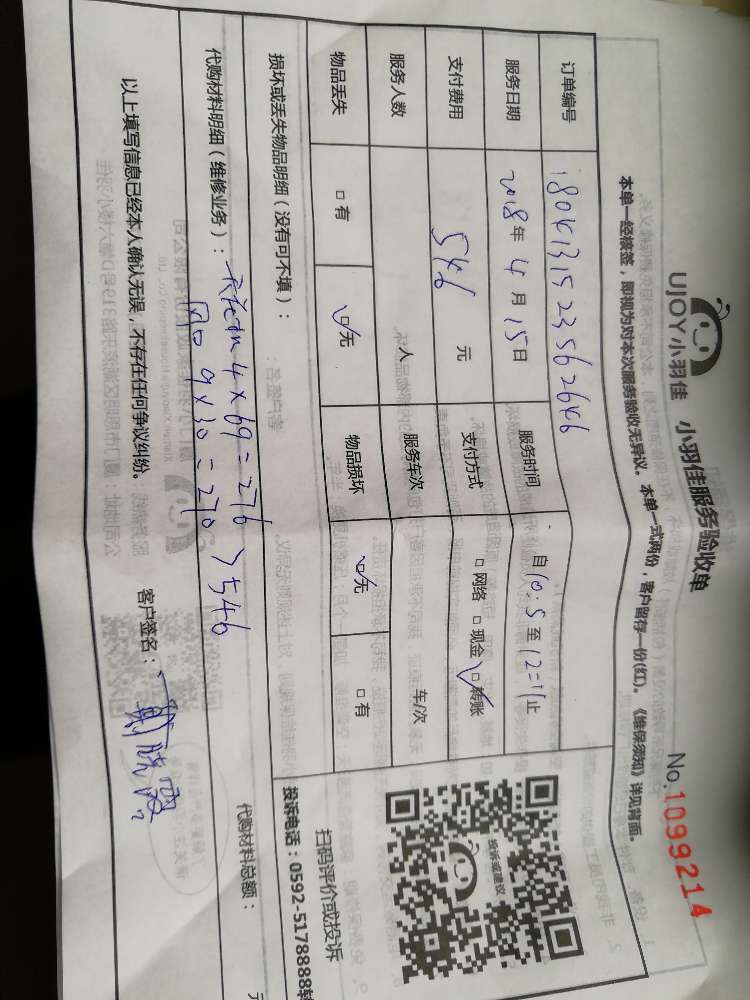 UJOY小羽佳 小羽佳服务验收单
No.1099214
本单一经核签,即视为对本次服务验收无异议。本单一式两份,客户留存一份(红)。《维保须知》详见背面。
订单编号 1804131523562646
服务日期 2018年4月15日 服务时间 自10:5至12=11止
支付费用 546元 支付方式 □网络 □现金 ☑转账
服务人数 人 服务车次 车/次
物品丢失 □有 ☑无 物品损坏 ☑无 □有
投诉或建议
扫码评价或投诉
投诉电话:0592-5178888转
损坏或丢失物品明细(没有可不填):
代购材料明细(维修业务): 4×69=276
风口 9×30=270 >546
代购材料总额: 元
以上填写信息已经本人确认无误,不存在任何争议纠纷。 客户签名: